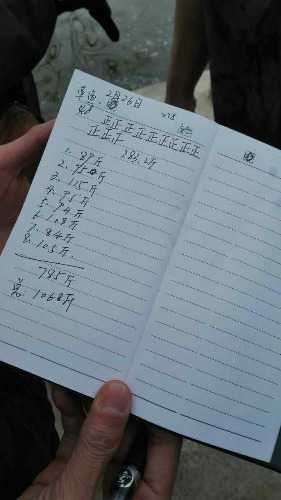 2月26日
正正正正正正正正
正正正
1. 89斤 283.2斤
2. 95斤
3. 115斤
4. 95斤
5. 94斤
6. 108斤
7. 84斤
8. 105斤
785斤
1068斤